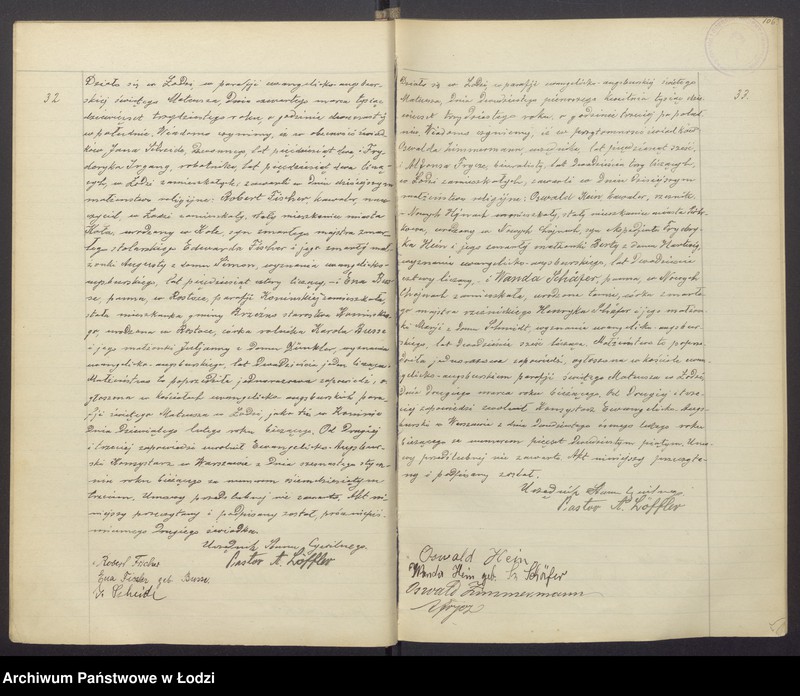 32
Działo się w Łodzi, w parafji ewangelicko-augsbur-
skiej świętego Mateusza, dnia czwartego marca tysiąc
dziewięćset trzydziestego roku, o godzinie dwunastej
w południe. Wiadomo czynimy, że w obecności świad-
ków, Jana dozorcy, lat pięćdziesiąt dwa i Fry-
deryka Irgang, robotnika, lat pięćdziesiąt dwa liczą-
cych, w Łodzi zamieszkałych, zawarto w dniu dzisiejszym
małżeństwo religijne: Robert Fischer, kawaler,
w Łodzi zamieszkały, stały mieszkaniec miasta
Koła, urodzony w Kole, syn zmarłego majstra
stolarskiego Edwarda Fischer i jego zmarłej mał-
żonki Augusty z domu Simon, wyznania ewangelicko-
augsburskiego, lat liczący, — i Ewa Bus-
se, panna, w parafji Konińskiej zamieszkała,
stała mieszkanka gminy Brzezno starostwa Konińskie-
go, urodzona w córka rolnika Karola Busse
i jego małżonki Juljanny z domu Dünkler, wyznania
ewangelicko-augsburskiego, lat dwadzieścia jeden licząca.
Małżeństwo to poprzedziła jednorazowa zapowiedź, o-
głoszona w kościołach ewangelicko-augsburskich para-
fji świętego Mateusza w Łodzi, jako też w Koninie
dnia dziewiątego lutego roku bieżącego. Od drugiej
i trzeciej zapowiedzi uwolnił Ewangelicko-Augsbur-
ski Konsystorz w Warszawie z dnia stycz-
nia roku bieżącego za numerem siedmdziesiątym
trzecim. Umowy przedślubnej nie zawarto. Akt ni-
niejszy przeczytany i podpisany został, prócz niepiś-
miennego drugiego świadka.
Urzędnik Stanu Cywilnego.
Pastor A. Löffler
Robert Fischer
Ewa Fischer geb. Busse.
106
33.
Działo się w Łodzi, w parafji ewangelicko-augsburskiej świętego
Mateusza, dnia dwudziestego pierwszego kwietnia tysiąc dzie-
więćset trzydziestego roku, o godzinie trzeciej po połud-
niu. Wiadomo czynimy, że w przytomności świadków
Oswalda Zimmermann, lat pięćdziesiąt sześć,
i Alfonsa biuralisty, lat dwadzieścia trzy liczących,
w Łodzi zamieszkałych, zawarto w dniu dzisiejszym
małżeństwo religijne: Oswald Hein kawaler,
w Nowych Chojnach zamieszkały, stały mieszkaniec miasta
urodzony w Nowych Chojnach, syn Frydery-
ka Hein i jego zmarłej małżonki Berty z domu
wyznania ewangelicko-augsburskiego, lat dwadzieścia
cztery liczący, — i Wanda Schäfer, panna, w Nowych
Chojnach zamieszkała, urodzona tamże, córka zmarłe-
go majstra rzeźnickiego Henryka Schäfer i jego małżon-
ki Marji z domu Schmidt, wyznania ewangelicko-augsbur-
skiego, lat dwadzieścia sześć licząca. Małżeństwo to poprze-
dziła jednorazowa zapowiedź, ogłoszona w kościele ewan-
gelicko-augsburskim parafji świętego Mateusza w Łodzi,
dnia drugiego marca roku bieżącego. Od drugiej i trze-
ciej zapowiedzi uwolnił Konsystorz Ewangelicko-Augs-
burski w Warszawie z dnia dwudziestego ósmego lutego roku
bieżącego za numerem pięćset dwudziestym piątym. Umo-
wy przedślubnej nie zawarto. Akt niniejszy przeczyta-
ny i podpisany został.
Urzędnik Stanu Cywilnego
Pastor A. Löffler
Oswald Hein
Wanda Hein geb. Schäfer
Oswald Zimmermann
Archiwum Państwowe w Łodzi